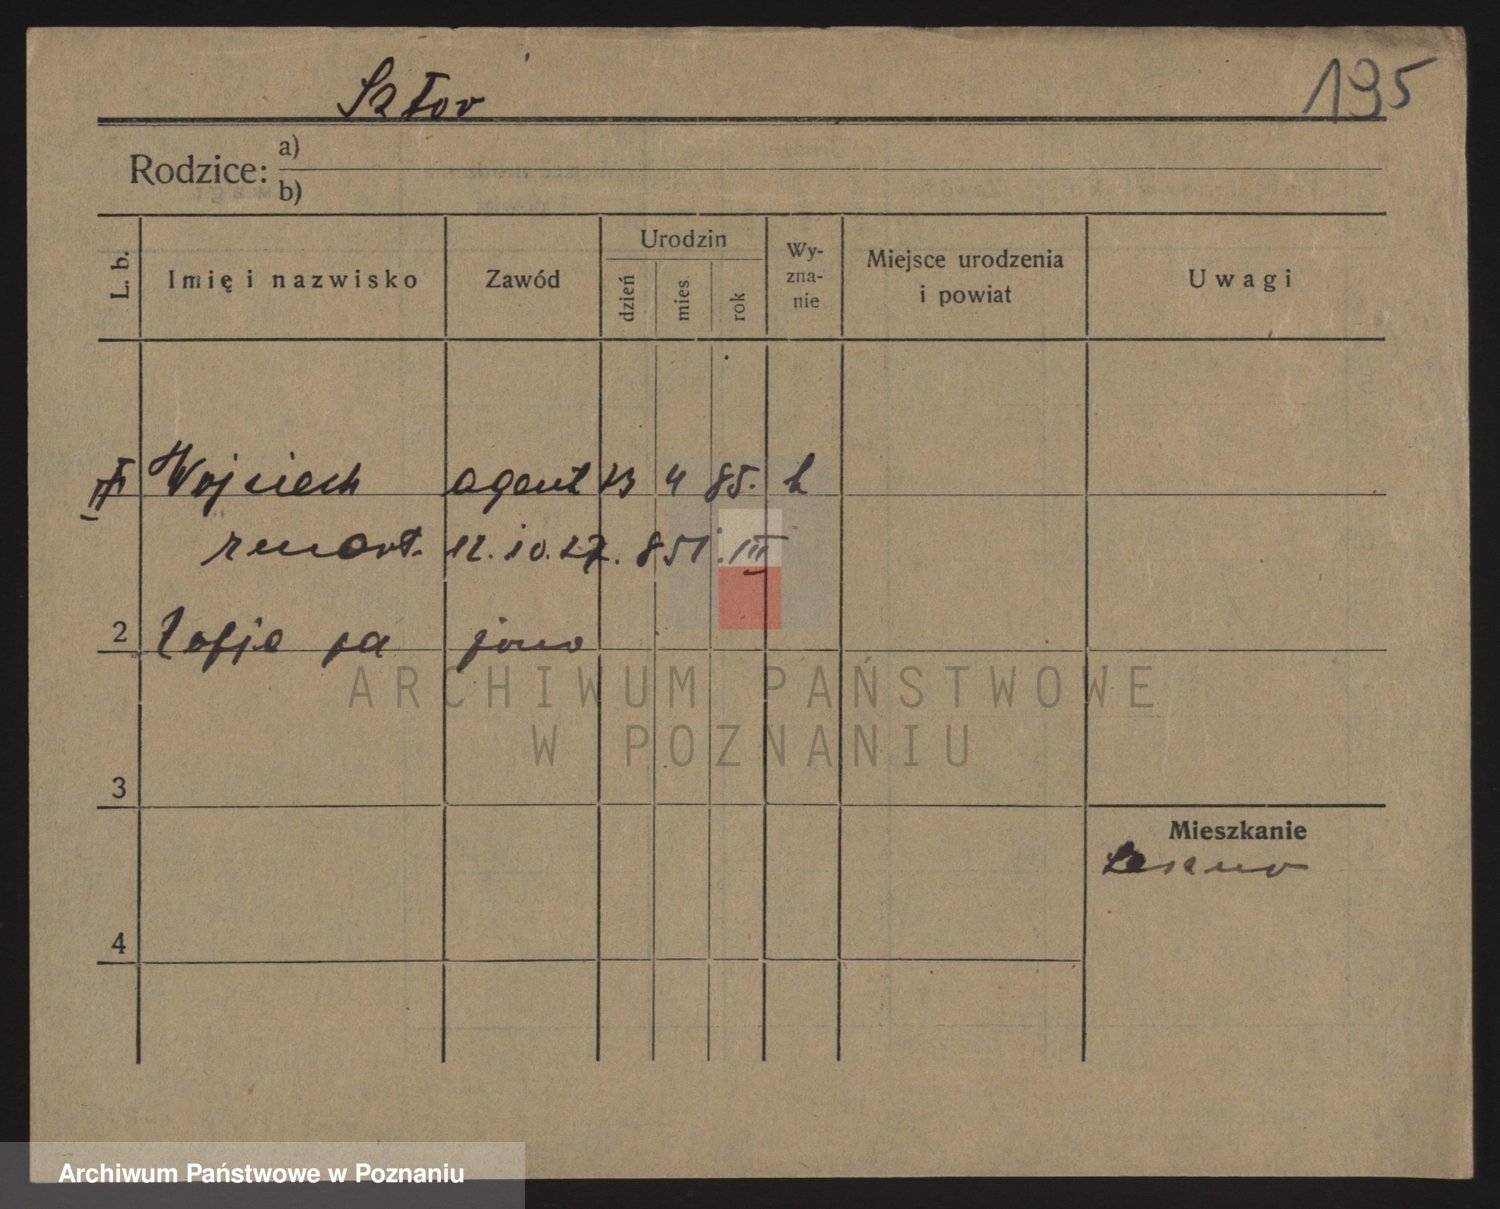 Sztor
195
Rodzice: a)
b)
L. b.
Imię i nazwisko
Zawód
Urodzin
dzień
mies
rok
Wy-
zna-
nie
Miejsce urodzenia
i powiat
Uwagi
Wojciech agent 23 4 85. k
zmart. 12.10.27. 851. III
2 Zofja
3
Mieszkanie
Leszno
4
ARCHIWUM PAŃSTWOWE
W POZNANIU
Archiwum Państwowe w Poznaniu